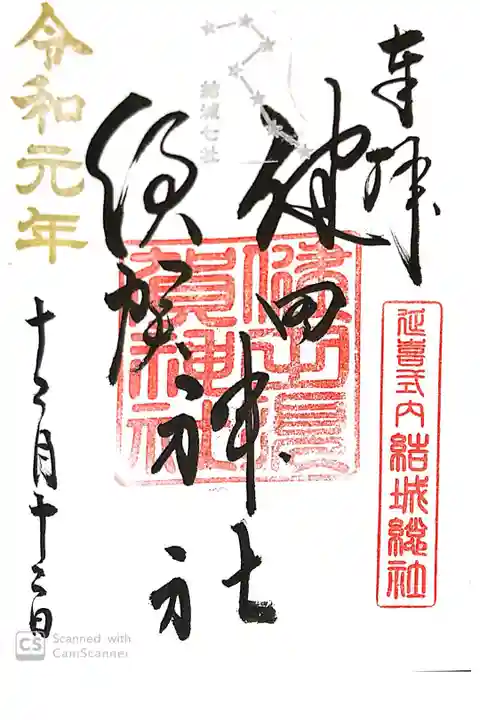 奉拝
延喜式内結城総社
健田神社
健田須賀神社
結城七社
須賀神社
令和元年
十二月十二日
CS Scanned with
CamScanner